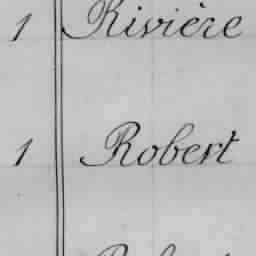 1 Rivière
1 Robert